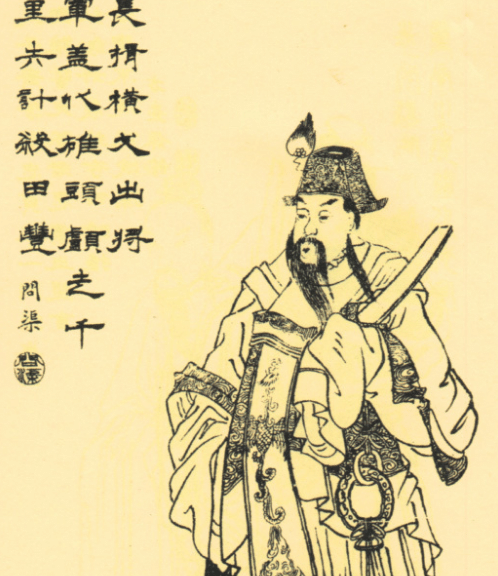 長揖橫刀出将
軍盖代雄頭顱走千
里失計殺田豐
問渠